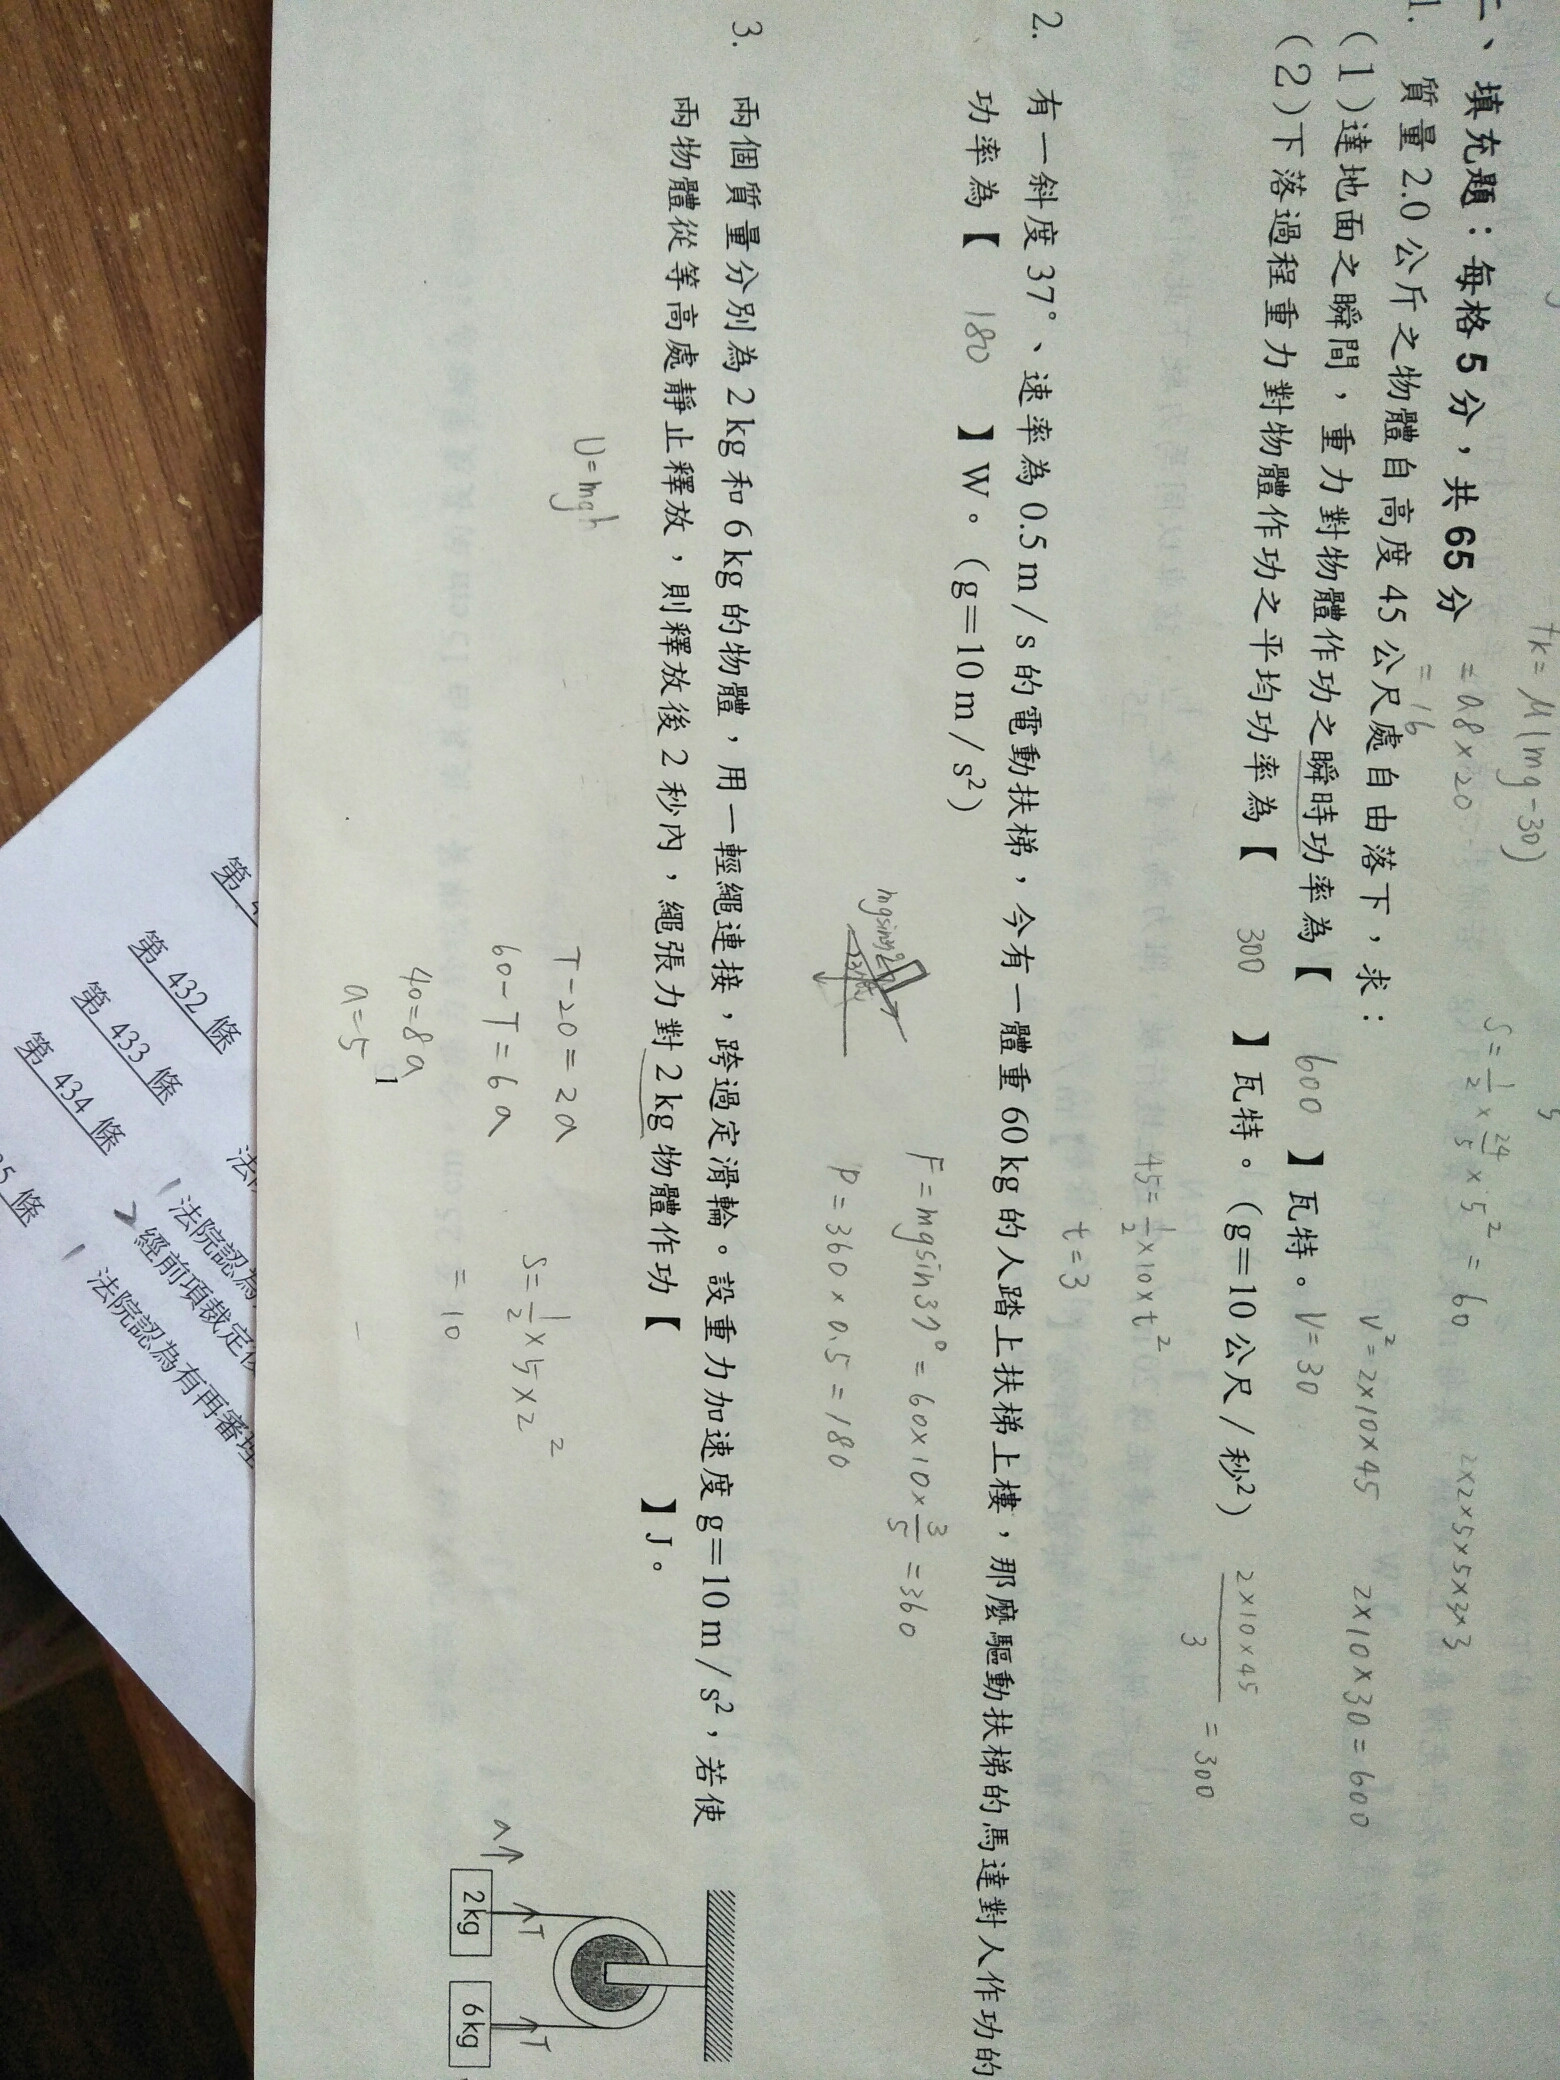 二、填充題：每格5分，共65分
fk=μ(mg-30)
=0.8×20
=16
S=1/2×24/5×5²=60
1. 質量2.0公斤之物體自高度45公尺處自由落下，求：
(1)達地面之瞬間，重力對物體作功之瞬時功率為【 600 】瓦特。
(2)下落過程重力對物體作功之平均功率為【 300 】瓦特。(g=10公尺/秒²)
2×2×5×5×3×3
V²=2×10×45
V=30
2×10×30=600
45=1/2×10×t²
t=3
2×10×45/3=300
2. 有一斜度37°、速率為0.5m/s的電動扶梯，今有一體重60kg的人踏上扶梯上樓，那麼驅動扶梯的馬達對人作功的
功率為【 180 】W。(g=10m/s²)
F=mgsin37°=60×10×3/5=360
P=360×0.5=180
3. 兩個質量分別為2kg和6kg的物體，用一輕繩連接，跨過定滑輪。設重力加速度g=10m/s²，若使
兩物體從等高處靜止釋放，則釋放後2秒內，繩張力對2kg物體作功【 】J。
U=mgh
T-20=2a
60-T=6a
40=8a
a=5
S=1/2×5×2²
=10
a↑
T
T
2kg
6kg
1
第 432 條
第 433 條
第 434 條
法院認為
經前項裁定
法院認為有再審理